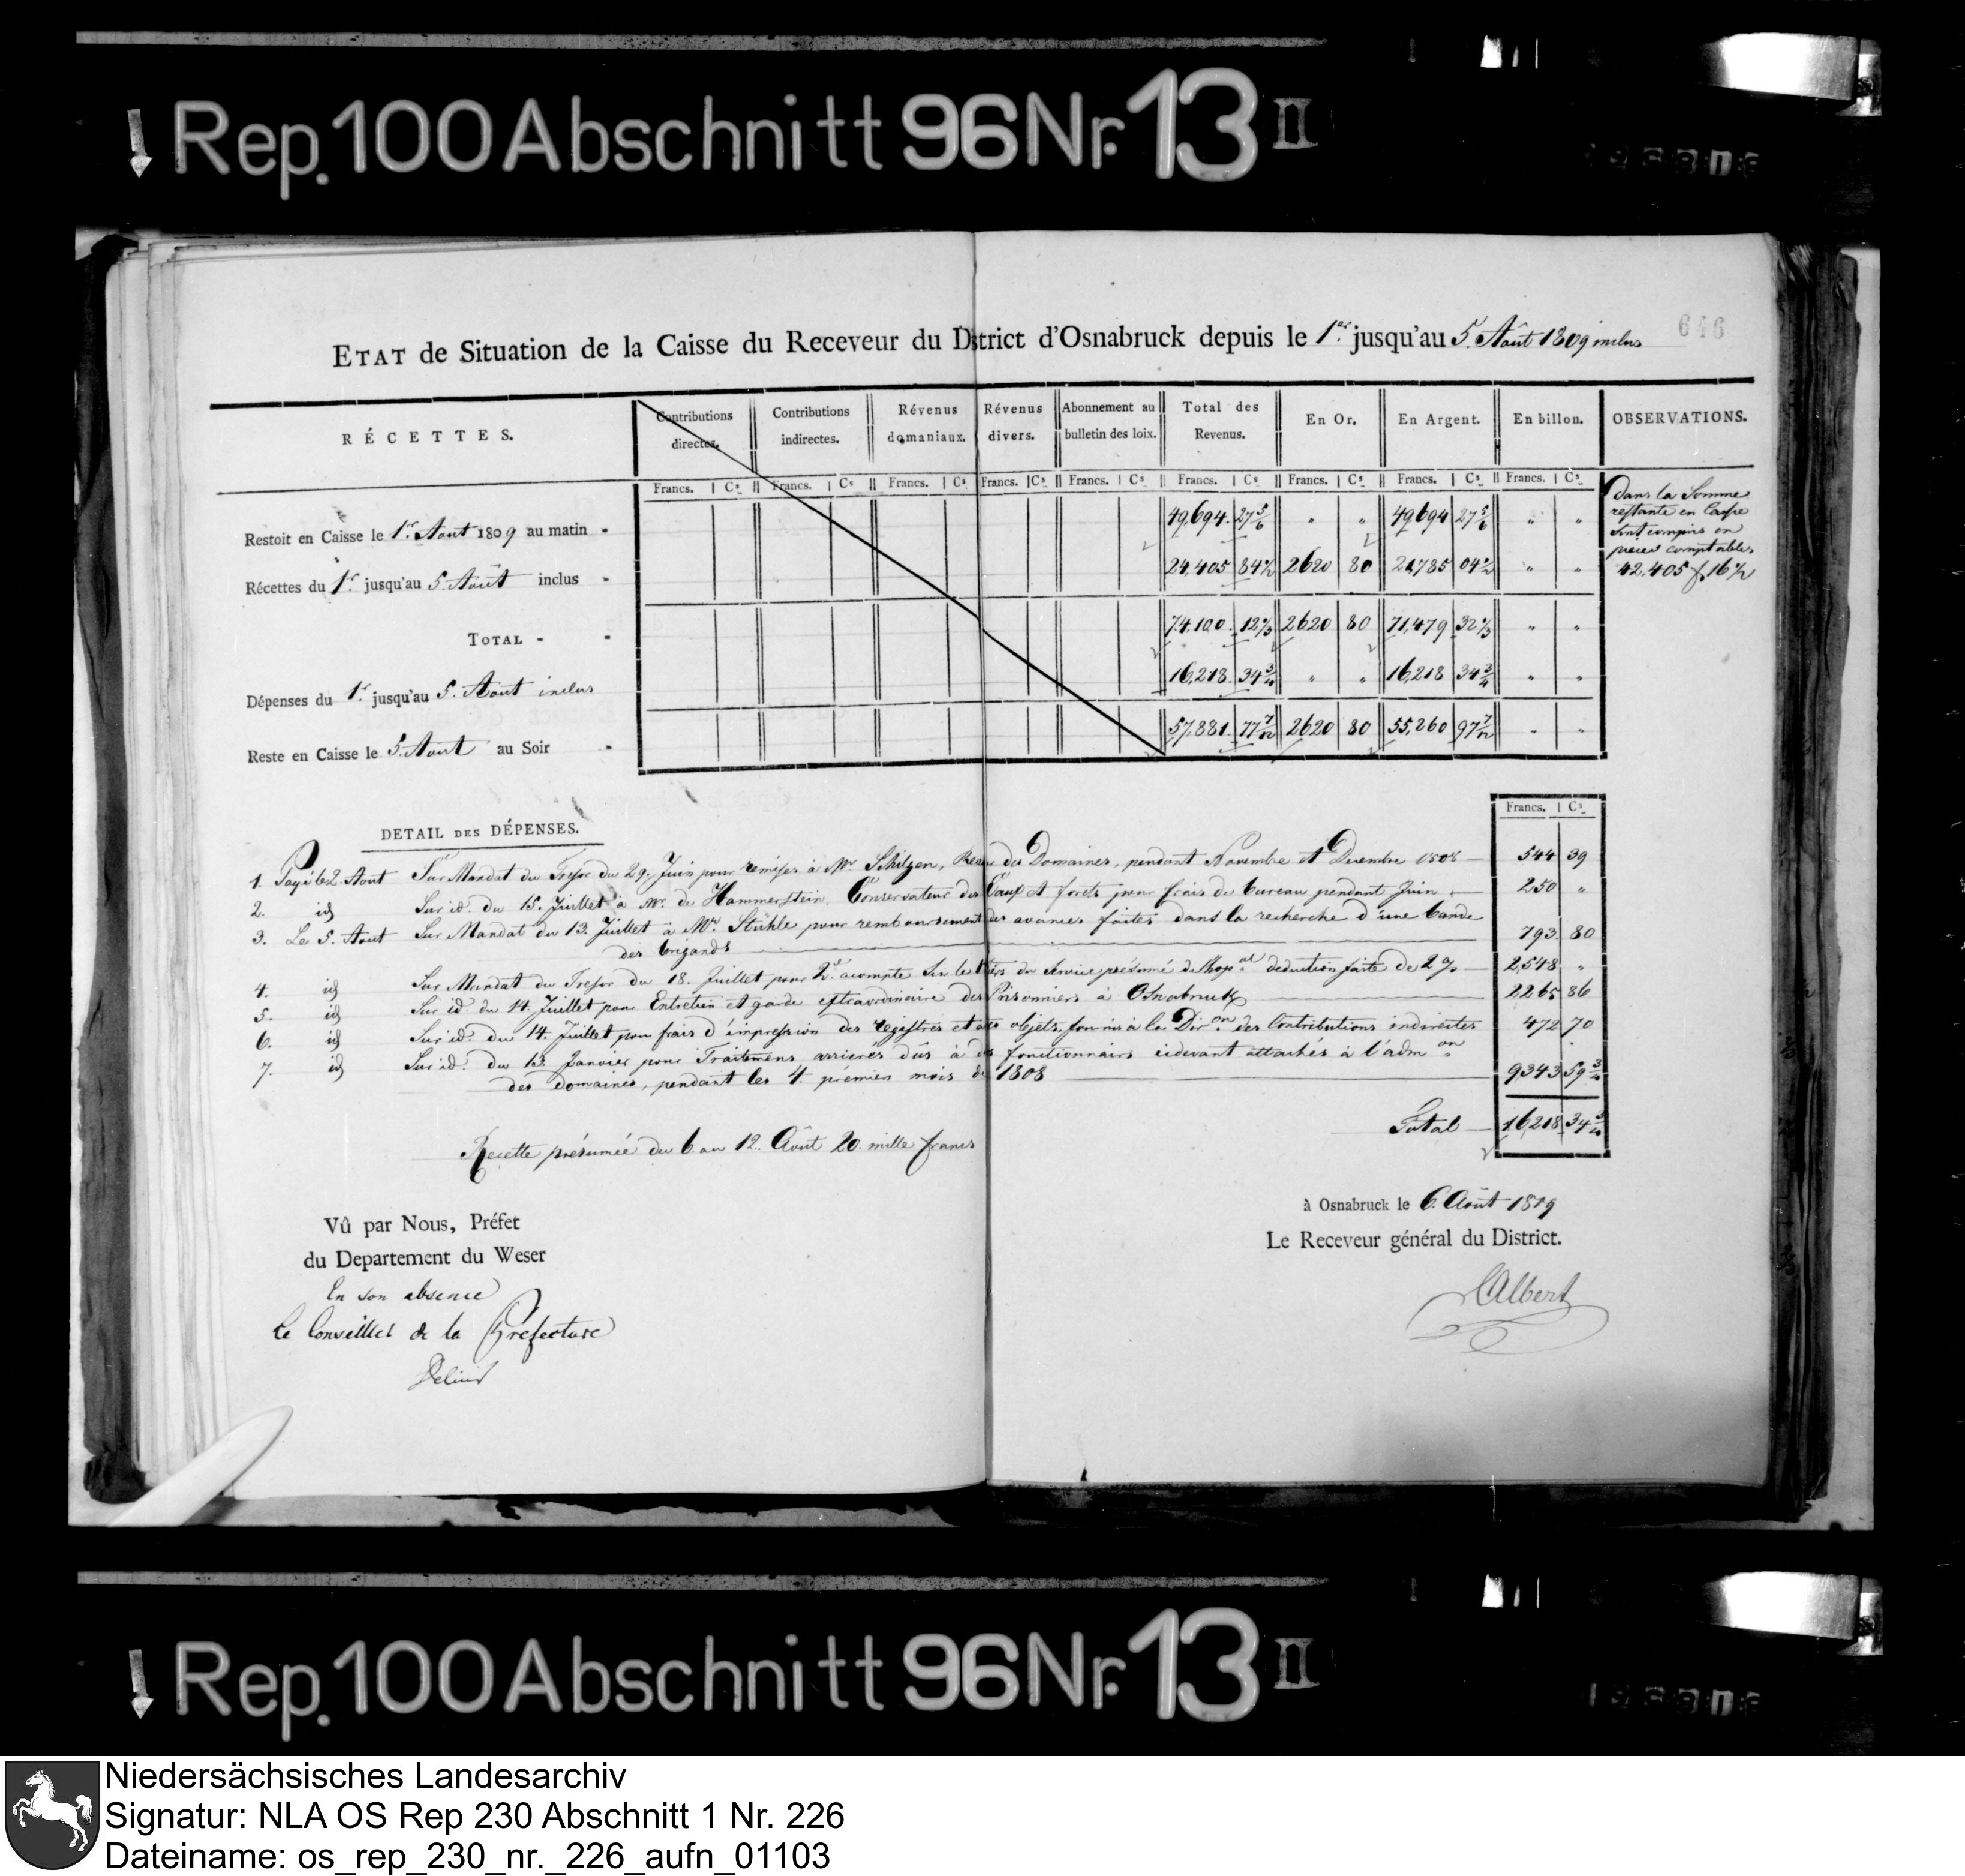 Rep. 100 Abschnitt 96 Nr. 13 II
646
ETAT de Situation de la Caisse du Receveur du District d'Osnabruck depuis le 1.er jusqu'au 5. Août 1809 inclus
RÉCETTES. Contributions directes. Contributions indirectes. Révenus domaniaux. Révenus divers. Abonnement au bulletin des loix. Total des Revenus. En Or. En Argent. En billon. OBSERVATIONS.
Francs. Cs. Francs. Cs. Francs. Cs. Francs. Cs. Francs. Cs. Francs. Cs. Francs. Cs. Francs. Cs. Francs. Cs.
Restoit en Caisse le 1.r Aout 1809 au matin - 49,694. 27 5/6 " " 49,694 27 5/6 " "
Récettes du 1.r jusqu'au 5. Août inclus - 24,405 84 1/2 2620 80 21,785 04 1/2 " "
TOTAL - - 74,100. 12 1/3 2620 80 71,479 32 1/3 " "
Dépenses du 1.r jusqu'au 5. Août inclus 16,218. 34 3/4 " " 16,218 34 3/4 " "
Reste en Caisse le 5. Aout au Soir - 57,881. 77 7/12 2620 80 55,260 97 7/12 " "
Dans la Somme
restante en Caisse
sont compris en
pieces comptables
42,405 f 16 1/2
DETAIL DES DÉPENSES.
Francs. Cs.
1. Payé le 2. Aout Sur Mandat du Tresor du 29. Juin pour remises à Mr. Schilgen, des Domaines, pendant Novembre et Decembre 1808 — 544 39
2. id Sur id. du 15. Juillet à Mr. de Hammerstein, Conservateur des Eaux et forets pour frais de bureau pendant Juin — 250 "
3. Le 5. Aout Sur Mandat du 13. Juillet à Mr. Stühle pour remboursement des avances faites dans la recherche d'une bande
des brigands — 793. 80
4. id Sur Mandat du Tresor du 18. Juillet pour 2.d acompte sur le tiers du Service présumé de deduction faite de 2 % — 2,548 "
5. id Sur id. du 14. Juillet pour Entretien et garde extraordinaire des Prisonniers à Osnabruck — 2265 86
6. id Sur id. du 14. Juillet pour frais d'impression des registres et objets fournis à la Dir.on des Contributions indirectes 472 70
7. id Sur id. du 13. Janvier pour Traitemens arrierés dûs à des fonctionnairs cidevant attachés à l'adm.on
des domaines, pendant les 4. prémiers mois de 1808 — 9,343 59 3/4
Total — 16,218 34 3/4
Recette présumée du 6 au 12. Août 20. mille francs
à Osnabruck le 6. Août 1809
Le Receveur général du District.
CAlbert
Vû par Nous, Préfet
du Departement du Weser
En son absence
Le Conseiller de la Préfecture
Delius
Rep. 100 Abschnitt 96 Nr. 13 II
Niedersächsisches Landesarchiv
Signatur: NLA OS Rep 230 Abschnitt 1 Nr. 226
Dateiname: os_rep_230_nr._226_aufn_01103